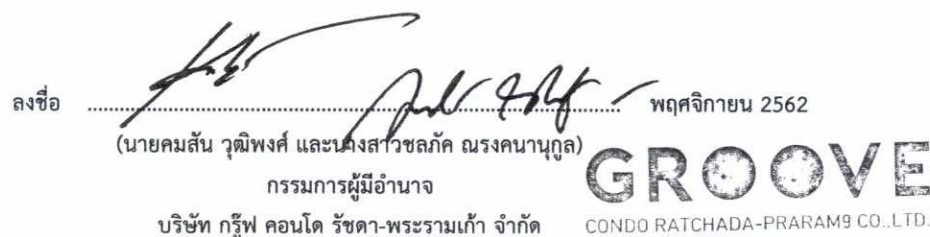 ลงชื่อ ............................................................ พฤศจิกายน 2562
(นายคมสัน วุฒิพงศ์ และนางสาวชลภัค ณรงคนานุกูล)
กรรมการผู้มีอำนาจ
บริษัท กรู๊ฟ คอนโด รัชดา-พระรามเก้า จำกัด
GROOVE
CONDO RATCHADA-PRARAM9 CO.,LTD.